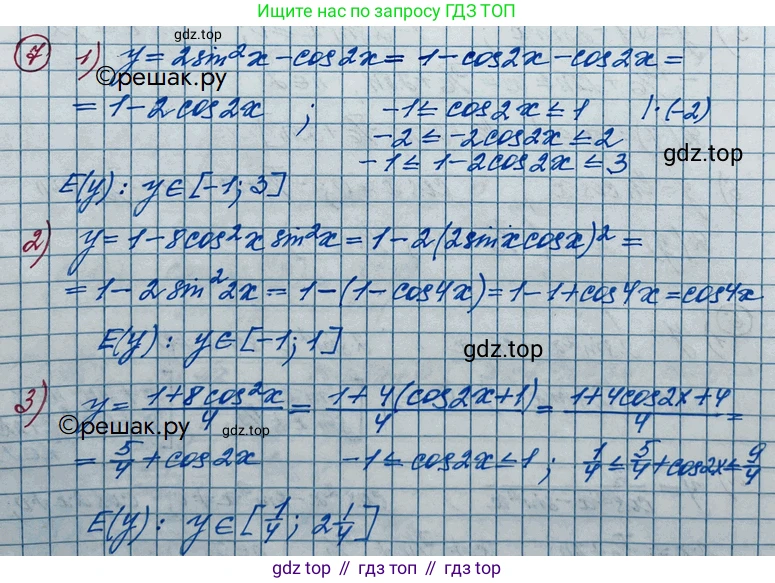 Ищите нас по запросу ГДЗ ТОП
gdz.top
7 1) y = 2sin²x - cos2x = 1 - cos2x - cos2x =
©решак.ру
= 1 - 2cos2x ; -1 ≤ cos2x ≤ 1 |·(-2)
-2 ≤ -2cos2x ≤ 2
-1 ≤ 1 - 2cos2x ≤ 3
gdz.top
E(y): y ∈ [-1; 3]
2) y = 1 - 8cos²x sin²x = 1 - 2(2sinxcosx)² =
= 1 - 2sin²2x = 1 - (1 - cos4x) = 1 - 1 + cos4x = cos4x
E(y): y ∈ [-1; 1]
gdz.top
3) y = (1+8cos²x)/4 = (1+4(cos2x+1))/4 = (1+4cos2x+4)/4 =
©решак.ру
gdz.top
= 5/4 + cos2x -1 ≤ cos2x ≤ 1 ; 1/4 ≤ 5/4 + cos2x ≤ 9/4
E(y): y ∈ [1/4; 2 1/4]
gdz.top // гдз.топ // gdz.top